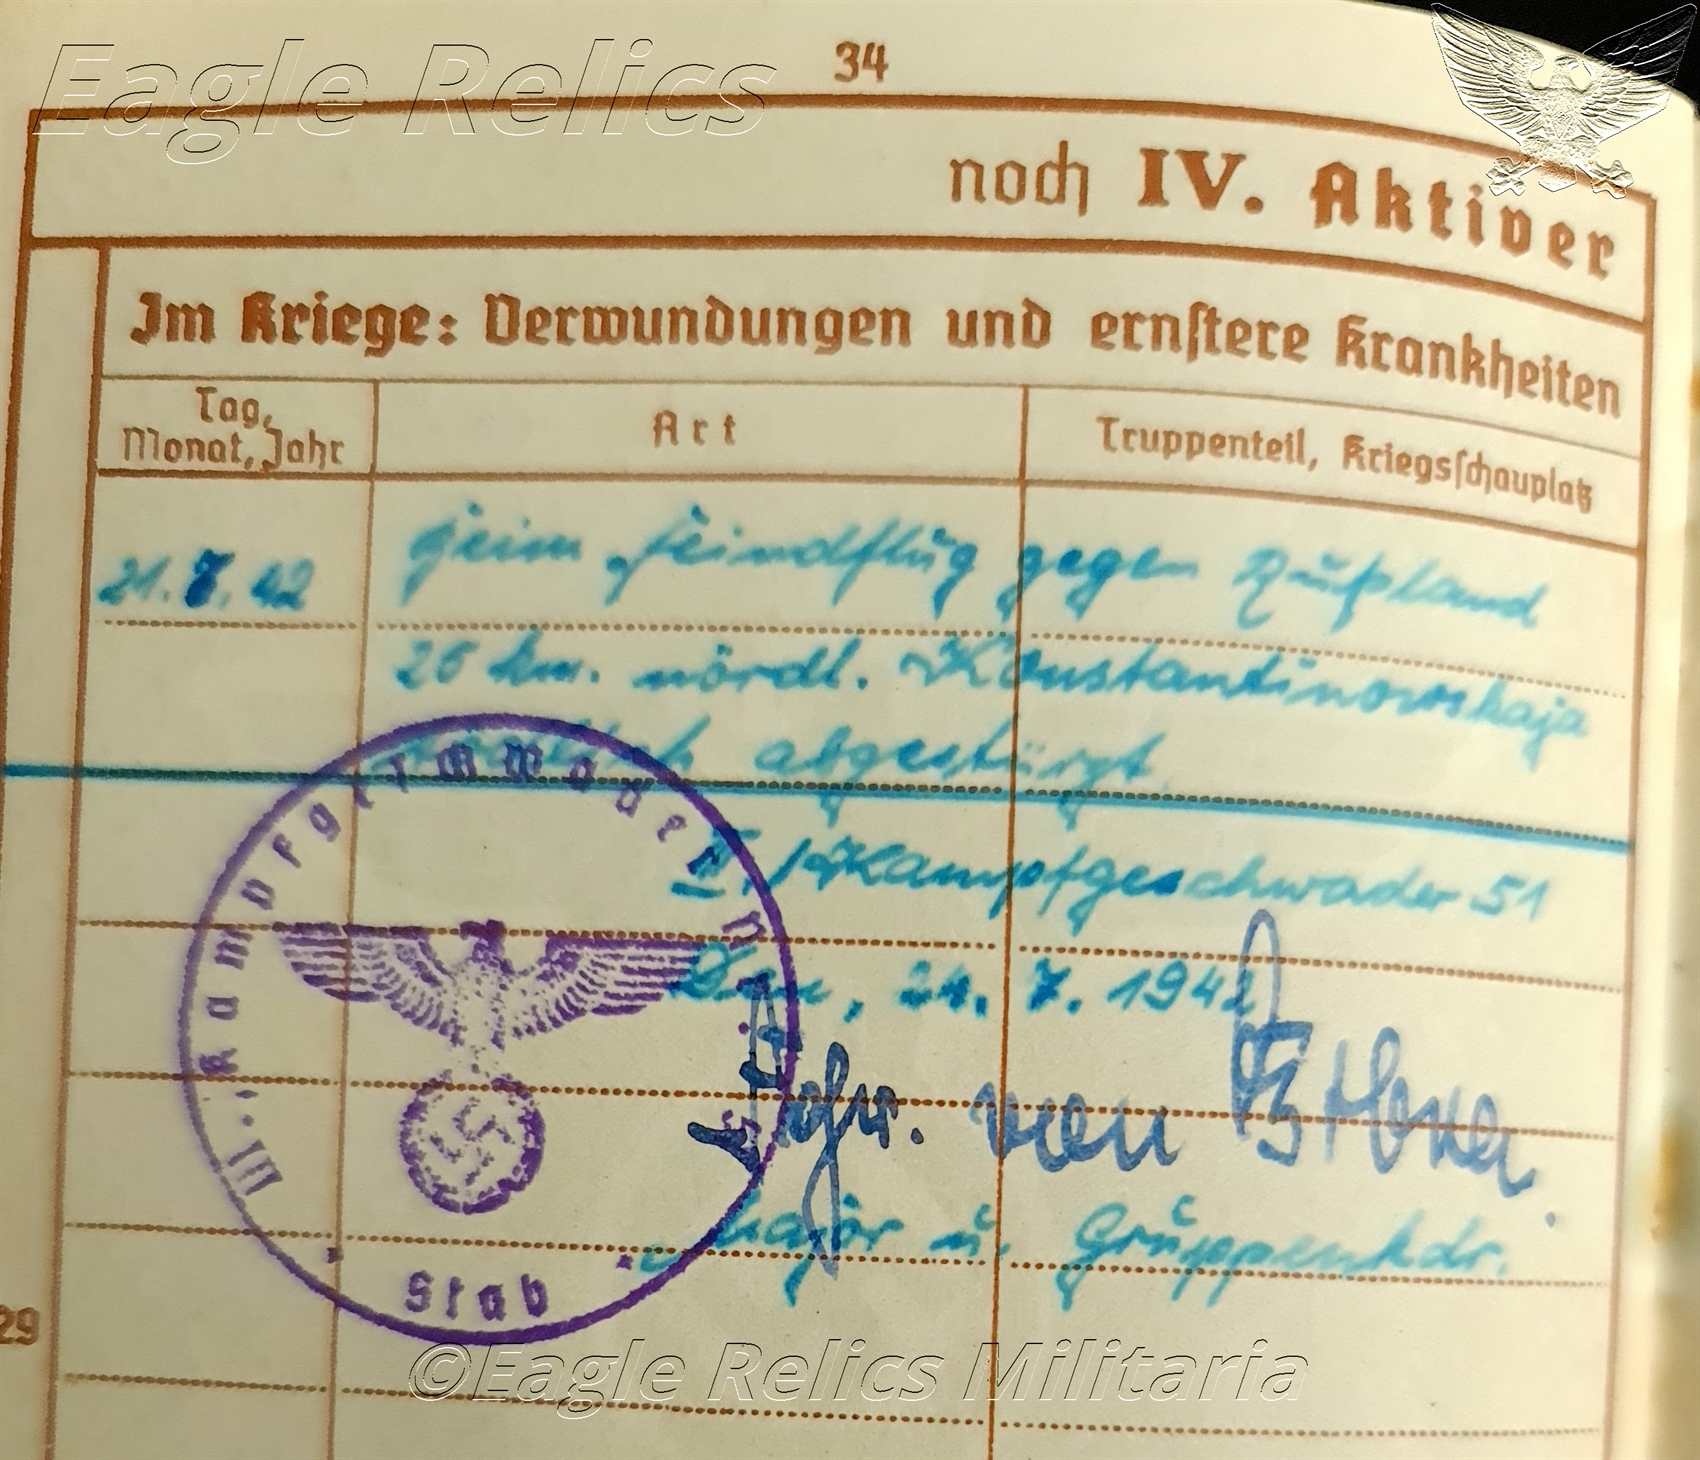 Eagle Relics
34
noch IV. Aktiver
Im Kriege: Verwundungen und ernstere Krankheiten
Tag, Monat, Jahr
Art
Truppenteil, Kriegsschauplatz
21.7.42
Beim Feindflug gegen Rußland
26 km. nördl. Konstantinowskaja
abgestürzt.
Kampfgeschwader 51
, 24. 7. 1942
Frhr. von
Major u. Gruppenkdr.
III. Kampfgeschwader
Stab
29
©Eagle Relics Militaria